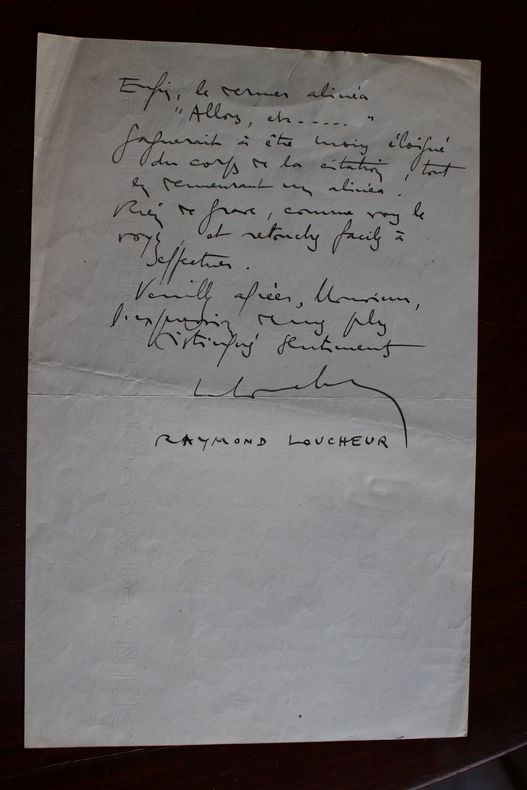 Enfin, le dernier alinéa
"Allons, etc....."
gagnerait à être moins éloigné
du corps de la citation, tout
en demeurant un alinéa.
Rien de grave, comme vous le
voyez, et retouches faciles à
effectuer.
Veuillez agréer, Monsieur,
l'expression de mes plus
distingués sentiments
RAYMOND LOUCHEUR